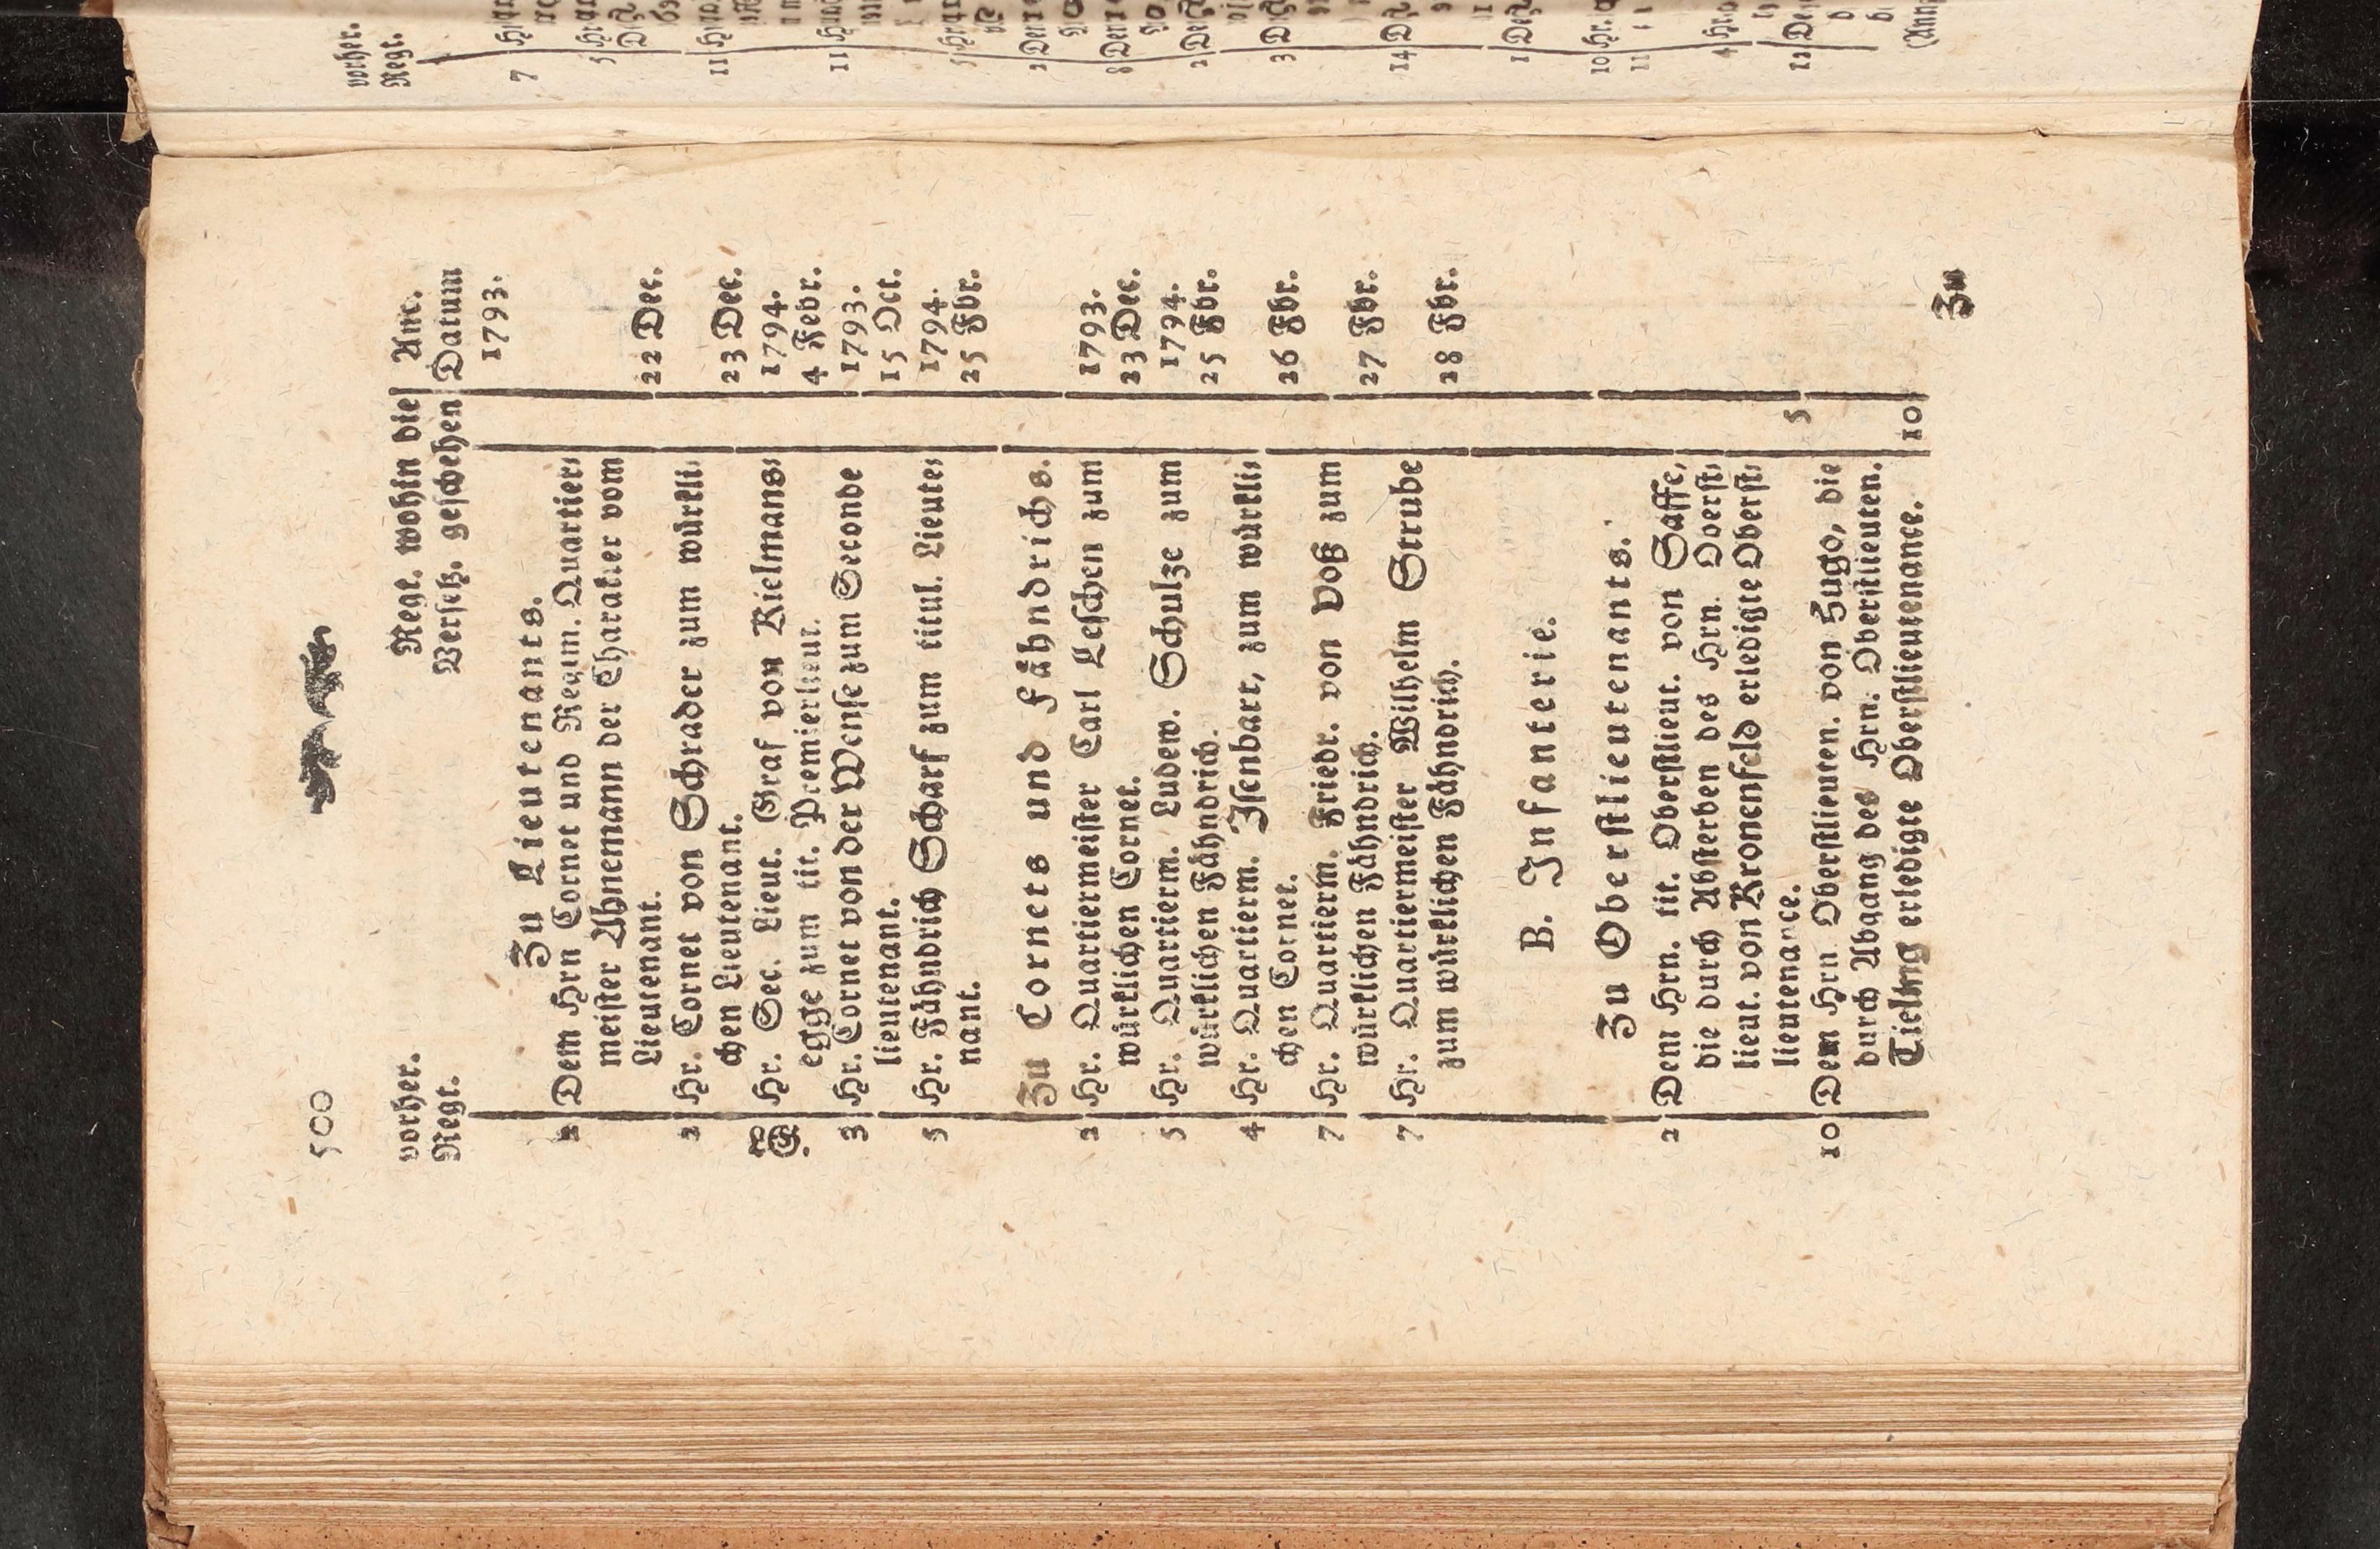 500
vorher. Regt. wohin die Anc.
Regt. Versetz. geschehen Datum
1793.
Zu Lieutenants.
2 Dem Hrn Cornet und Regim. Quartier⸗
meister Ahnemann der Charakter vom
Lieutenant. 22 Dec.
2 Hr. Cornet von Schrader zum würkli⸗
chen Lieutenant. 23 Dec.
Hr. Sec. Lieut. Graf von Kielmans⸗ 1794.
egge zum tit. Premierlieut. 4 Febr.
3 Hr. Cornet von der Wense zum Seconde 1793.
lieutenant. 15 Oct.
5 Hr. Fähndrich Scharf zum titul. Lieute⸗ 1794.
nant. 25 Fbr.
Zu Cornets und Fähndrichs.
2 Hr. Quartiermeister Carl Leschen zum 1793.
würklichen Cornet. 23 Dec.
5 Hr. Quartierm. Ludew. Schulze zum 1794.
würklichen Fähndrich. 25 Fbr.
4 Hr. Quartierm. Isenbart, zum würkli⸗
chen Cornet. 26 Fbr.
7 Hr. Quartierm. Friedr. von Voß zum
würklichen Fähndrich. 27 Fbr.
7 Hr. Quartiermeister Wilhelm Strube
zum würklichen Fähndrich. 28 Fbr.
B. Infanterie.
Zu Oberstlieutenants.
2 Dem Hrn. tit. Oberstlieut. von Saffe,
die durch Absterben des Hrn. Oberst⸗
lieut. von Kronenfeld erledigte Oberst⸗
lieutenance. 5
10 Dem Hrn Oberstlieuten. von Hugo, die
durch Abgang des Hrn. Oberstlieuten.
erledigte Oberstlieutenance. 10
Zu
vorher.
Regt.
7
5
11
11
5
2
8
2
3
14
1
10 Hr.
11
4
12